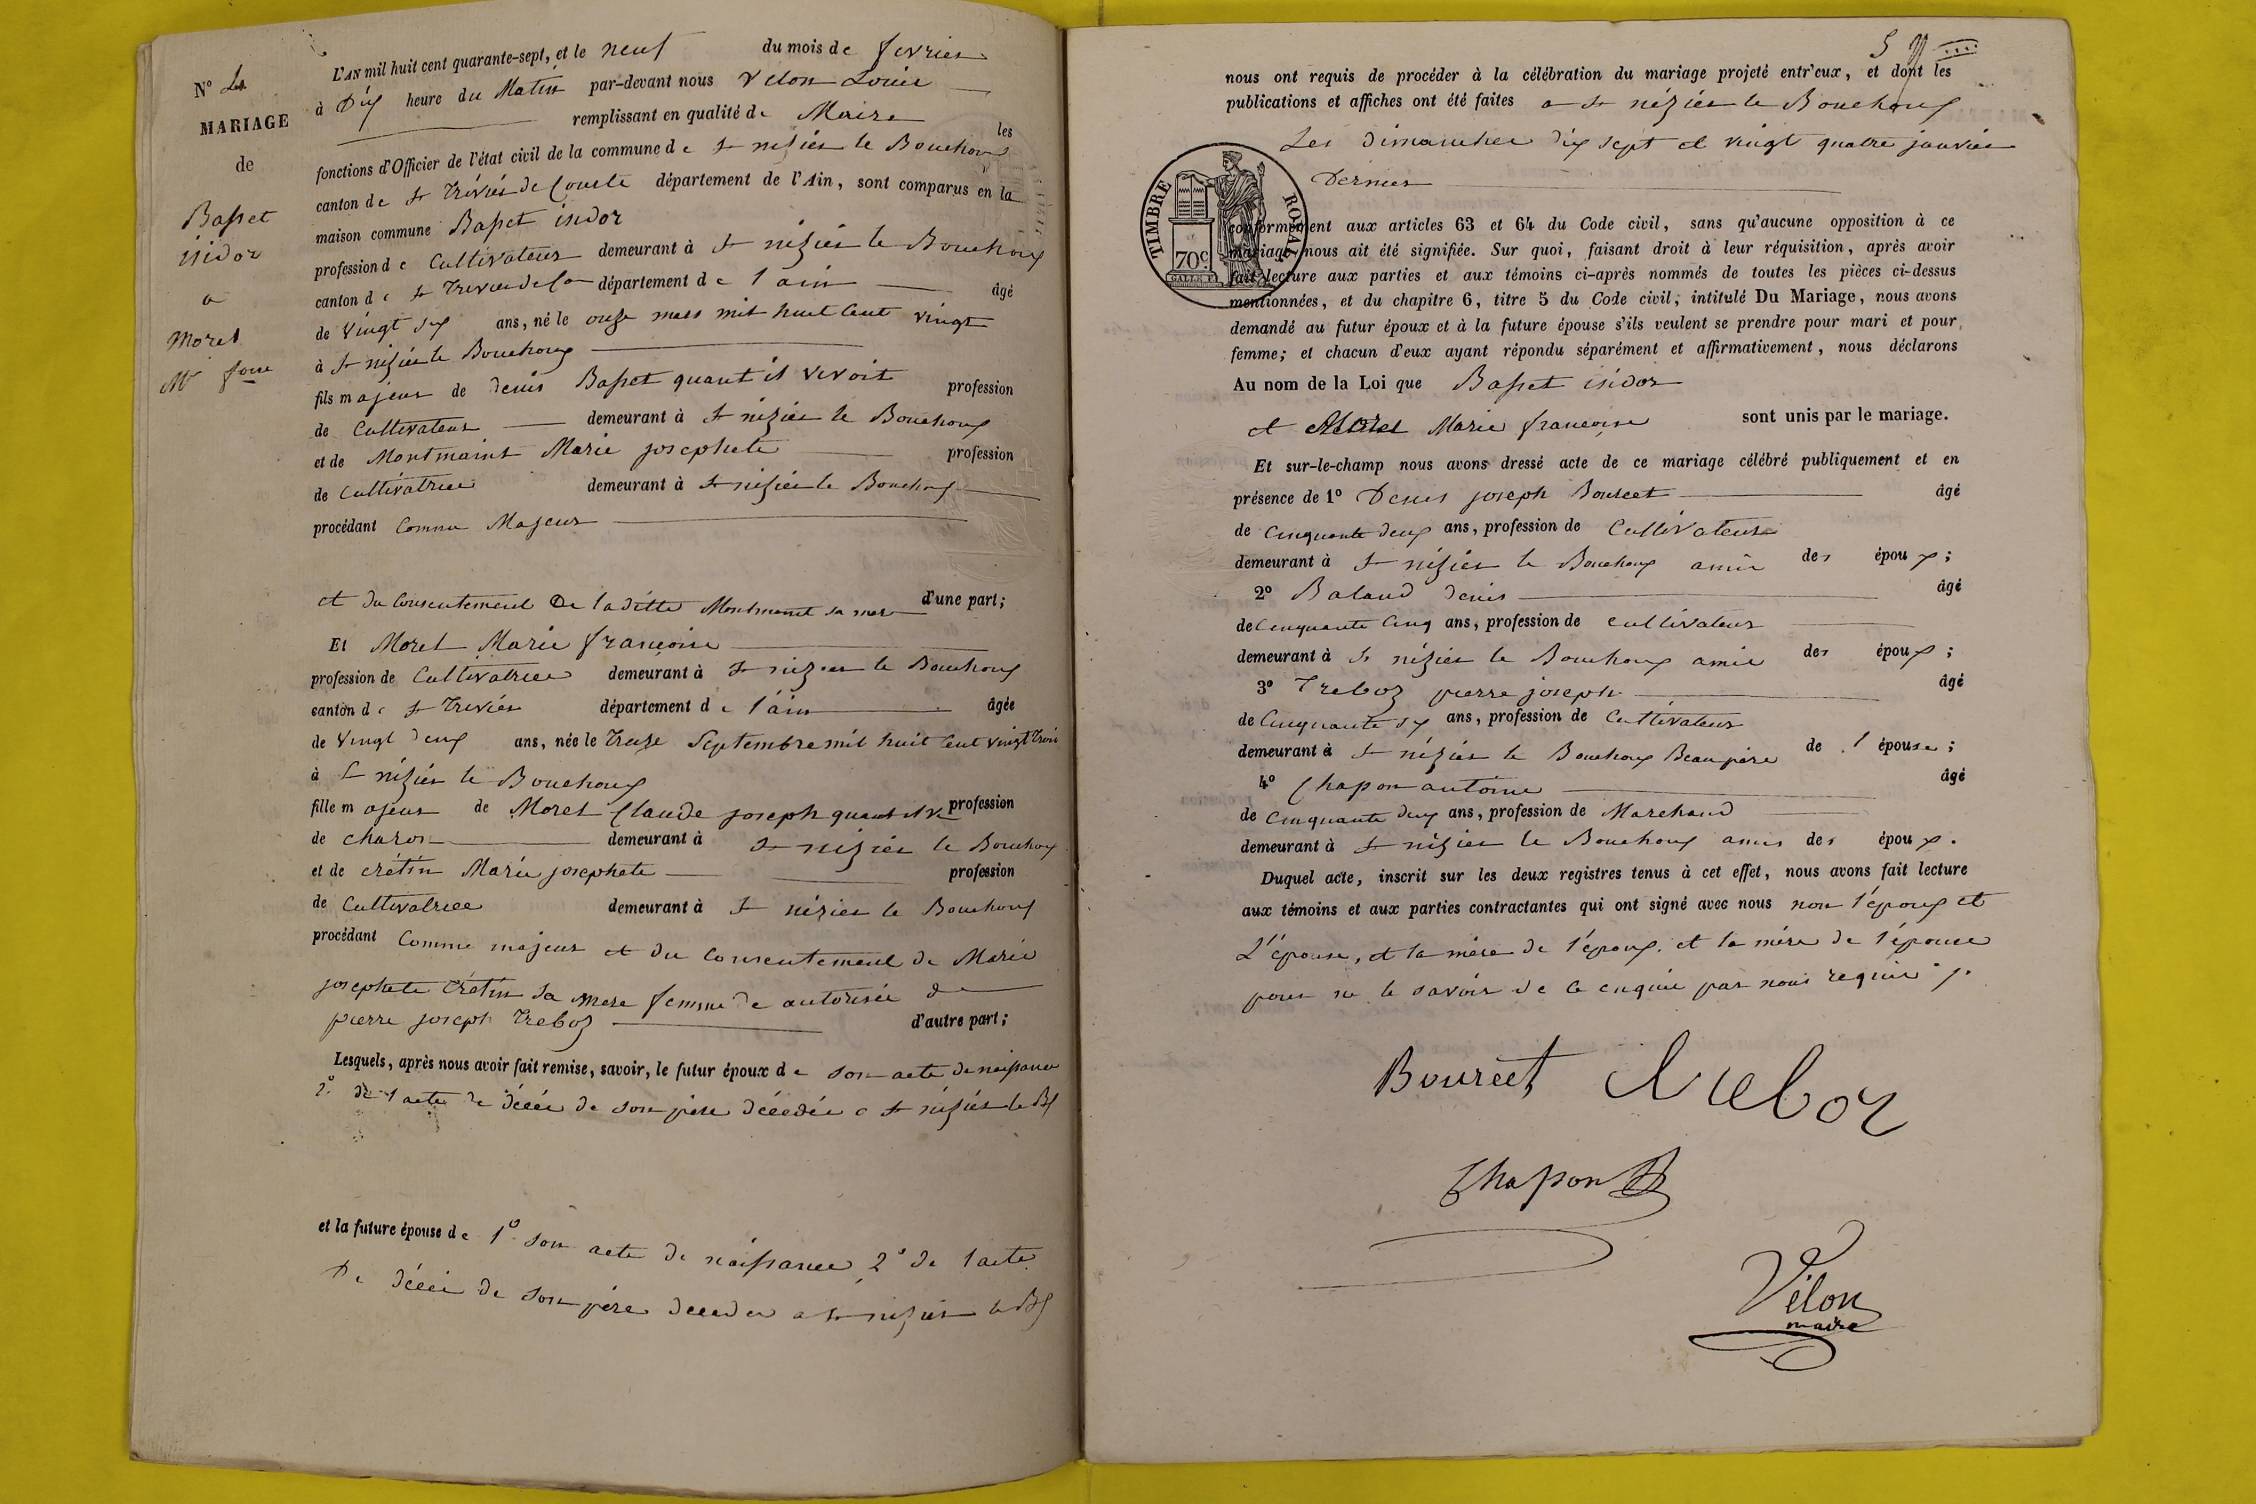 N° 4
MARIAGE
de
Basset
isidor
a
Moret
Mie foise
L'AN mil huit cent quarante-sept, et le neuf du mois de fevrier
à Dix heure du Matin par-devant nous Velon Louis
remplissant en qualité de Maire les
fonctions d'Officier de l'état civil de la commune de St nizier le Bouchoux
canton de St Trivier de Courte département de l'Ain, sont comparus en la
maison commune Basset isidor
profession de Cultivateur demeurant à St nizier le Bouchoux
canton de St Trevier de Co département de l'ain âgé
de vingt six ans, né le onze mars mil huit Cent vingt
à St nizier le Bouchoux
fils majeur de denis Basset quant il vivoit profession
de Cultivateur demeurant à St nizier le Bouchoux
et de Montmaint Marie josephete profession
de Cultivatrice demeurant à St nizier le Bouchoux
procédant Comme Majeur
et du Consentement De laditte Montmaint sa mere d'une part;
Et Moret Marie françoise
profession de Cultivatrice demeurant à St nizier le Bouchoux
canton de St Trivier département de l'ain âgée
de vingt deux ans, née le Treize Septembre mil huit Cent vingt trois
à St nizier le Bouchoux
fille majeur de Moret Claude joseph quant il vi profession
de charon demeurant à St nizier le Bouchoux
et de crétin Marie josephete profession
de Cultivatrice demeurant à St nizier le Bouchoux
procédant Comme majeur et du Consentement de Marie
josephete Crétin sa mere femme de autorisée de
pierre joseph Treboz d'autre part;
Lesquels, après nous avoir fait remise, savoir, le futur époux de son acte de naissance
2° de l acte de décée de son père décédée a St nizier le Bx
et la future épouse de 1° son acte de naissance 2° de l acte
De décée de son père décédér a St nizier le Bx
5
nous ont requis de procéder à la célébration du mariage projeté entr'eux, et dont les
publications et affiches ont été faites a St nizier le Bouchoux
Les dimanches dix sept et vingt quatre janvier
Dernier
TIMBRE ROYAL
70c
conformément aux articles 63 et 64 du Code civil, sans qu'aucune opposition à ce
mariage nous ait été signifiée. Sur quoi, faisant droit à leur réquisition, après avoir
fait lecture aux parties et aux témoins ci-après nommés de toutes les pièces ci-dessus
mentionnées, et du chapitre 6, titre 5 du Code civil, intitulé Du Mariage, nous avons
demandé au futur époux et à la future épouse s'ils veulent se prendre pour mari et pour
femme; et chacun d'eux ayant répondu séparément et affirmativement, nous déclarons
Au nom de la Loi que Basset isidor
et Moret Marie françoise sont unis par le mariage.
Et sur-le-champ nous avons dressé acte de ce mariage célébré publiquement et en
présence de 1° Denis joseph Bourcet âgé
de Cinquante deux ans, profession de Cultivateur
demeurant à St nizier le Bouchoux amis des époux;
2° Baland denis âgé
de Cinquante Cinq ans, profession de cultivateur
demeurant à St nizier le Bouchoux amis des époux;
3° Treboz pierre joseph âgé
de Cinquante six ans, profession de Cultivateur
demeurant à St nizier le Bouchoux Beau père de l épouse;
4° Chapon antoine âgé
de Cinquante deux ans, profession de Marchand
demeurant à St nizier le Bouchoux amis des époux.
Duquel acte, inscrit sur les deux registres tenus à cet effet, nous avons fait lecture
aux témoins et aux parties contractantes qui ont signé avec nous non l'époux et
L'épouse, et la mère de l'époux. et la mère de l'épouse
pour ne le savoir de ce enquis par nous requis
Bourcet Treboz
Chapon
Vélon
maire